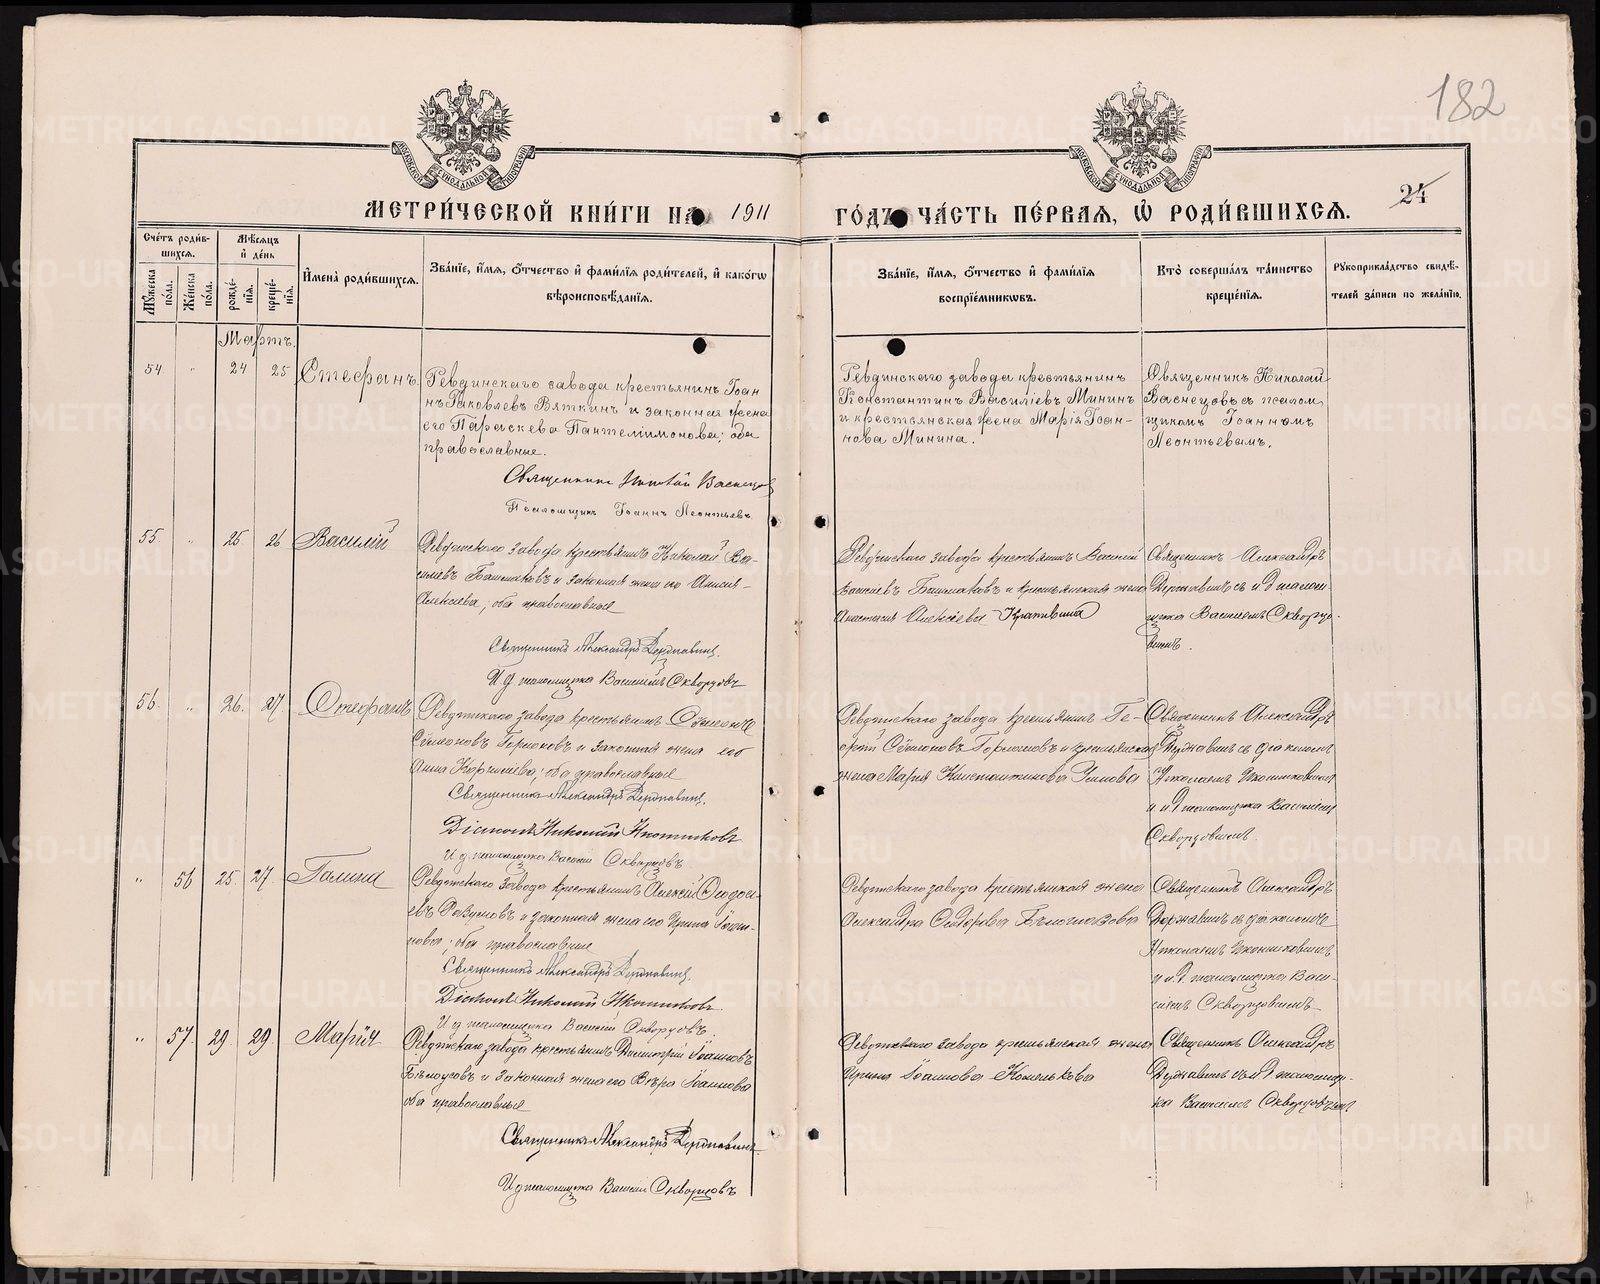 182
МОСКОВСКОЙ СѴНОДАЛЬНОЙ ТИПОГРАФІИ
МОСКОВСКОЙ СѴНОДАЛЬНОЙ ТИПОГРАФІИ
24
МЕТРИ́ЧЕСКОЙ КНИ́ГИ НА 1911
ГО́ДЪ ЧА́СТЬ ПЕ́РВАЯ, Ѡ҆ РОДИ́ВШИХСЯ.
Сче́тъ роди́в-
шихся.
Му́жеска по́ла.
Же́нска по́ла.
Мѣ́сяцъ и҆ де́нь
рожде́-
нїя.
креще́-
нїя.
И҆мена̀ роди́вшихся.
Зва́нїе, и҆́мя, ѻ҆́тчество и҆ фами́лїя роди́телей, и҆ како́гѡ
вѣроисповѣ́данїя.
Зва́нїе, и҆́мя, ѻ҆́тчество и҆ фами́лїя
воспрїе́мникѡвъ.
Кто̀ соверша́лъ та́инство
креще́нїя.
Рꙋкоприкла́дство свидѣ́-
телей за́писи по жела́нїю.
Мартъ.
54 " 24 25 Стефанъ.
Ревдинскаго завода крестьянинъ Іоан
нъ Іаковлевъ Вяткинъ и законная жена
его Параскева Пантелiимонова; оба
православные.
Священникъ Николай Васнецов
Псаломщикъ Іоаннъ Леонтьевъ
Ревдинскаго завода крестьянинъ
Константинъ Василіевъ Мининъ
и крестьянская жена Марія Іоан-
нова Минина.
Священникъ Николай
Васнецовъ съ псалом
щикомъ Іоанномъ
Леонтьевымъ.
55 " 25 26 Василій
Ревдинскаго завода крестьянинъ Николай Ва-
сильевъ Башмаковъ и законная жена его Анисия
Алексіева, оба православные
Священникъ Александръ Державинъ.
И д псаломщика Василій Скворцовъ
Ревдинскаго завода крестьянинъ Василий
Башмаковъ и крестьянская жена
Анастасия Алексіева Крапивина
Священникъ Александръ
Державинъ съ и д псалом-
щика Василіемъ Скворцо-
вымъ.
56 " 26 27 Стефанъ
Ревдинскаго завода крестьянинъ Сѵмеонъ
Сѵмеоновъ Горшковъ и законная жена его
Анна Корнилиева; оба православные
Священникъ Александръ Державинъ.
Діаконъ Николай Иконниковъ
И д псаломщика Василій Скворцовъ
Ревдинскаго завода крестьянинъ Ге-
оргій Сѵмеоновъ Горшковъ и крестьянская
жена Мария Константинова
Священникъ Александръ
Державинъ съ діакономъ
Николаемъ Иконниковымъ
и и д псаломщика Василіемъ
Скворцовымъ.
" 56 25 27 Галина
Ревдинскаго завода крестьянинъ Алексій Ѳеодо-
евъ и законная жена его Ирина Іоан-
нова; оба православные
Священникъ Александръ Державинъ.
Діаконъ Николай Иконниковъ.
И д псаломщика Василій Скворцовъ.
Ревдинскаго завода крестьянская жена
Александра Сидорова Бѣлоглазова
Священникъ Александръ
Державинъ съ діакономъ
Николаемъ Иконниковымъ
и и д псаломщика Васи-
ліемъ Скворцовымъ
" 57 29 29 Марія
Ревдинскаго завода крестьянинъ Димитрій Іоанновъ
Бѣлоусовъ и законная жена его Вѣра Іоаннова
оба православные
Священникъ Александръ Державинъ
И д псаломщика Василій Скворцовъ
Ревдинскаго завода крестьянская жена
Ирина Іоаннова Конькова
Священникъ Александръ
Державинъ съ и д псаломщи-
ка Василіемъ Скворцовымъ